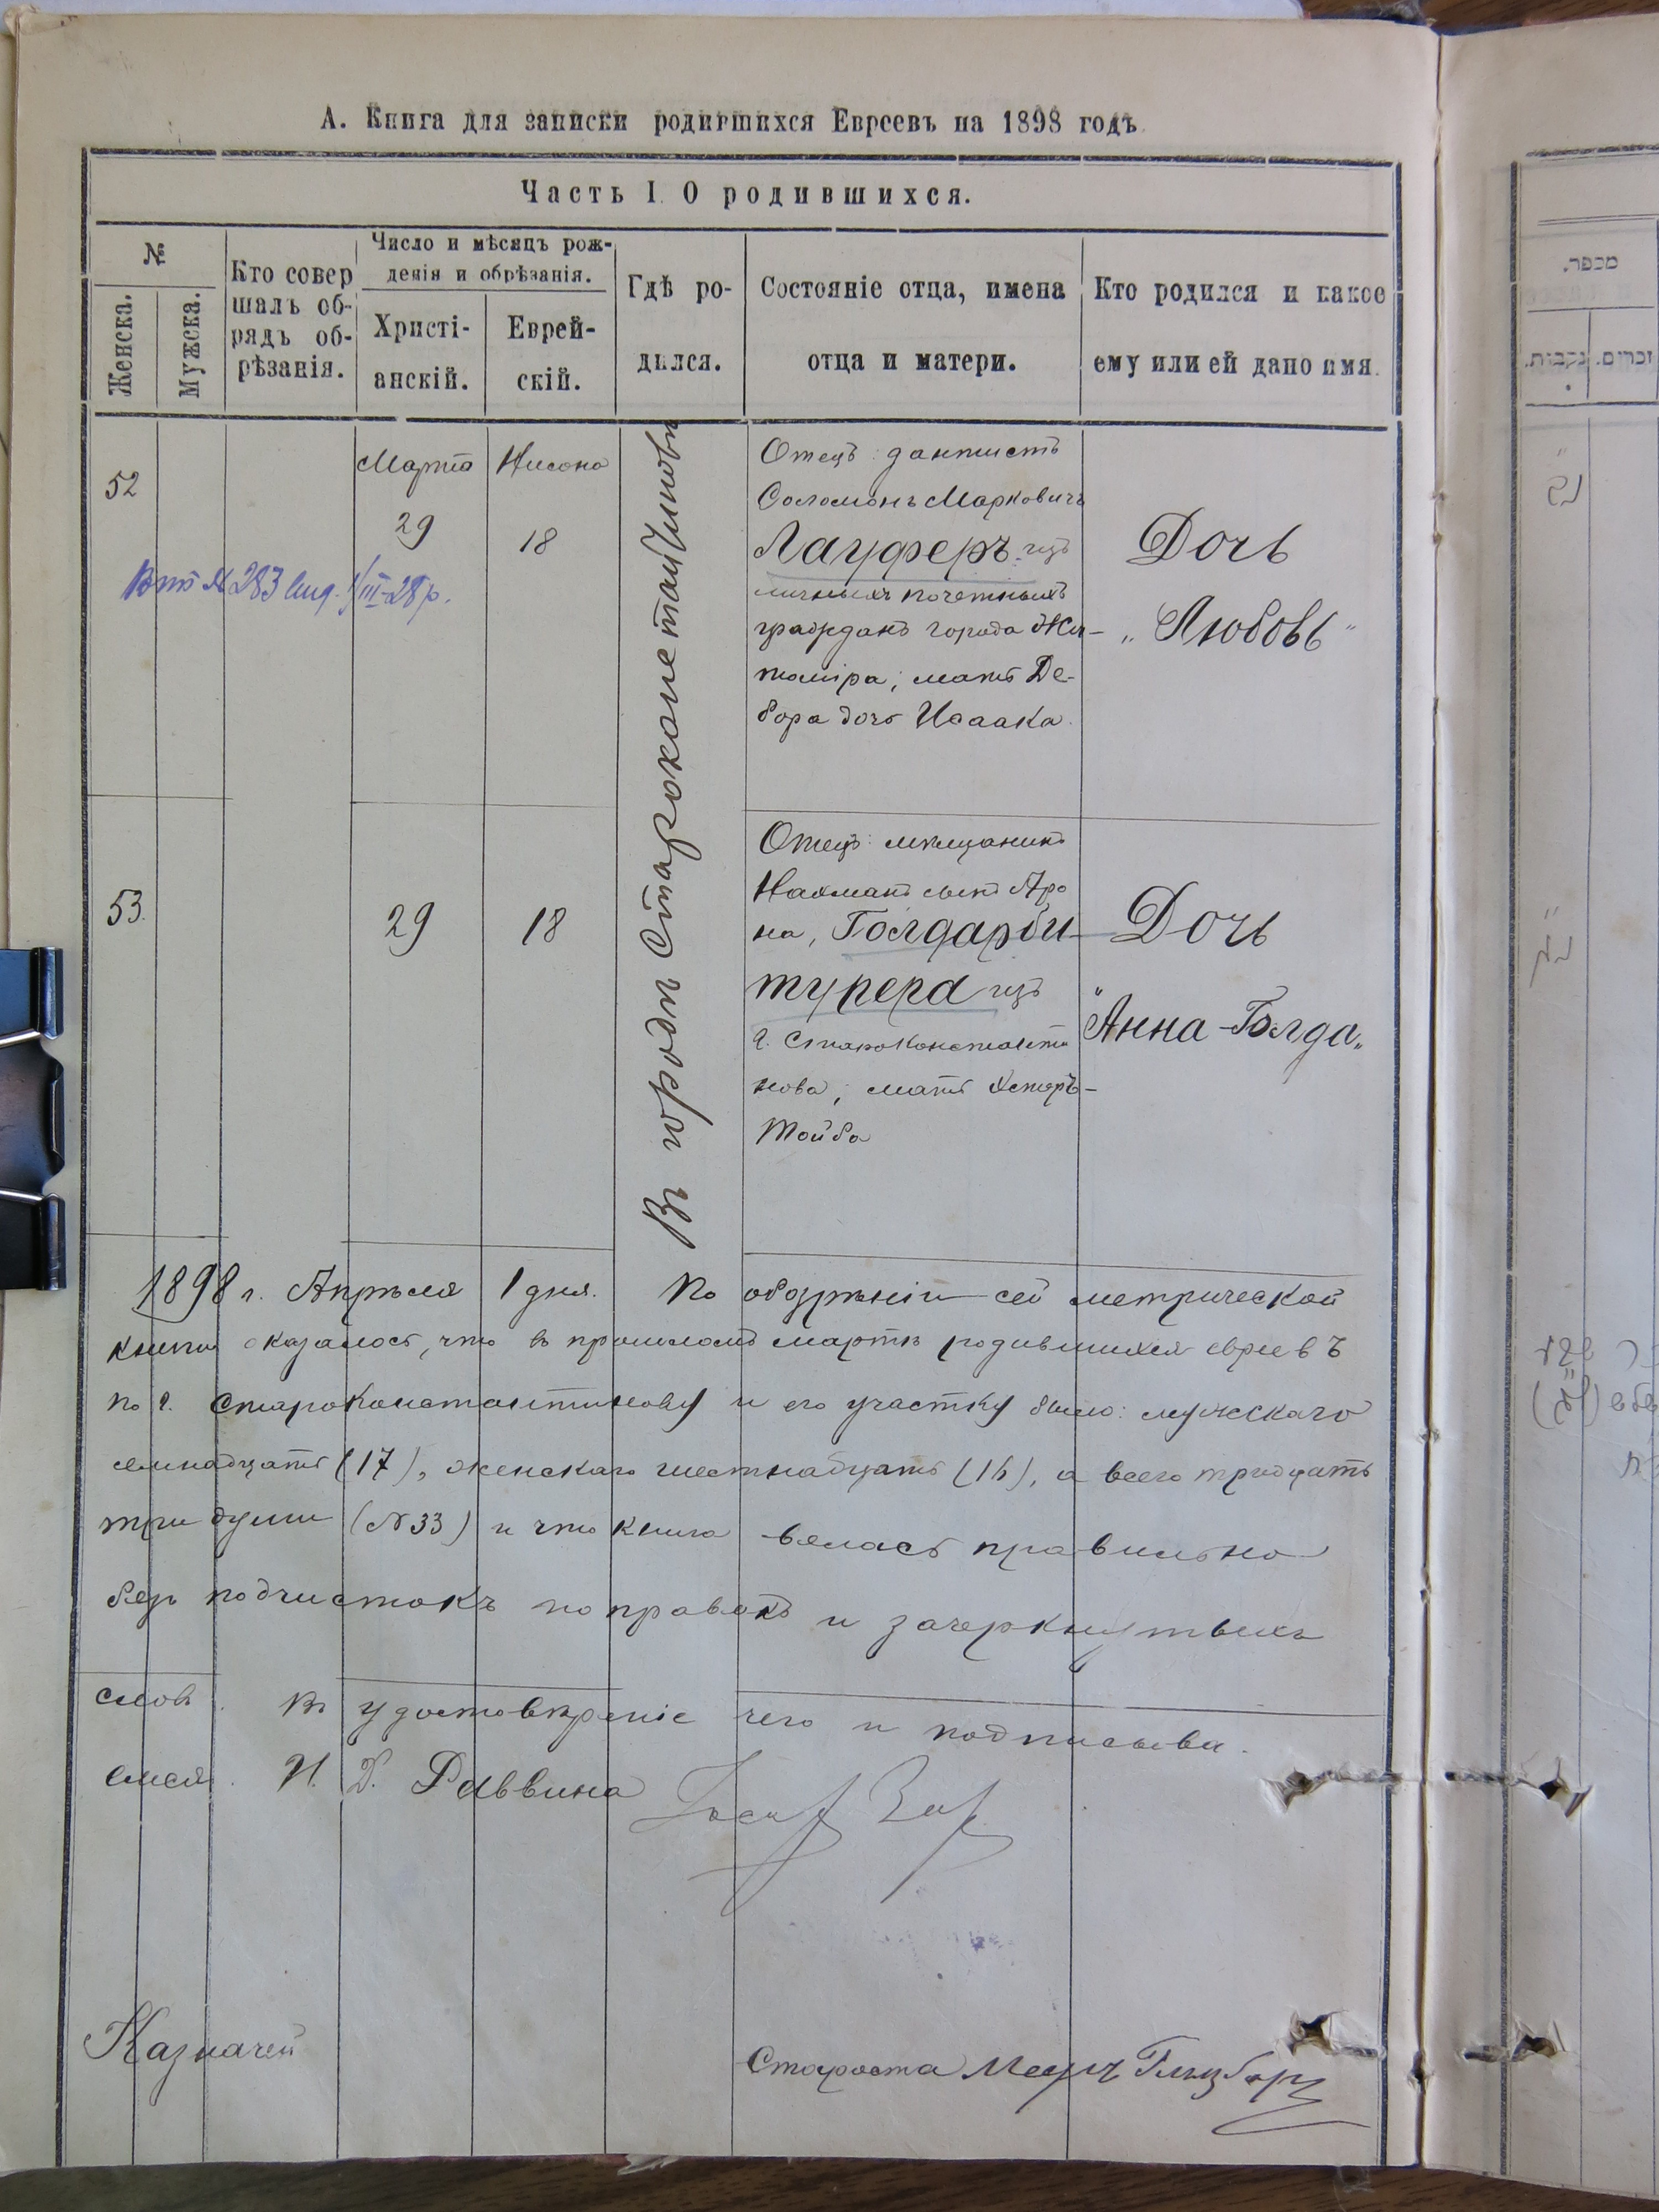 А. Книга для записки родившихся Евреевъ на 1898 годъ.
Часть I О родившихся.
№
Женска.
Мужска.
Кто совер
шалъ об-
рядъ об-
рѣзанія.
Число и мѣсяцъ рож-
денія и обрѣзанія.
Христі-
анскій.
Еврей-
скій.
Гдѣ ро-
дился.
Состояніе отца, имена
отца и матери.
Кто родился и какое
ему или ей дано имя.
52
Марта
29
Нисона
18
В городѣ Староконстантиновѣ
Отецъ: дантистъ
Соломонъ Марковичъ
Лауферъ изъ
личныхъ почетныхъ
гражданъ города Жи-
томіра; мать Де-
бора дочь Исаака.
Дочь
„Любовь"
№ 283 III-28 р.
53.
29
18
Отецъ: мѣщанинъ
Нахманъ сынъ Аро
на, Голдарби
турера изъ
г. Староконстанти
нова; мать Эстеръ-
Тойба
Дочь
"Анна-Голда„
1898 г. Апрѣля 1 дня. По обозрѣніи сей метрической
книги оказалось, что въ прошломъ мартѣ родившихся евреевъ
по г. Староконстантинову и его участку было: мужскаго
семнадцать (17), женскаго шестнадцать (16), а всего тридцать
три души (№33) и что книга велась правильно
безъ подчистокъ поправокъ и зачеркнутыхъ
словъ. Въ удостовѣреніе чего и подписыва.
емся. И. Д. Раввина
Казначей
Староста Мееръ Гинзбург
מספר.
זכרים.
נקבות.